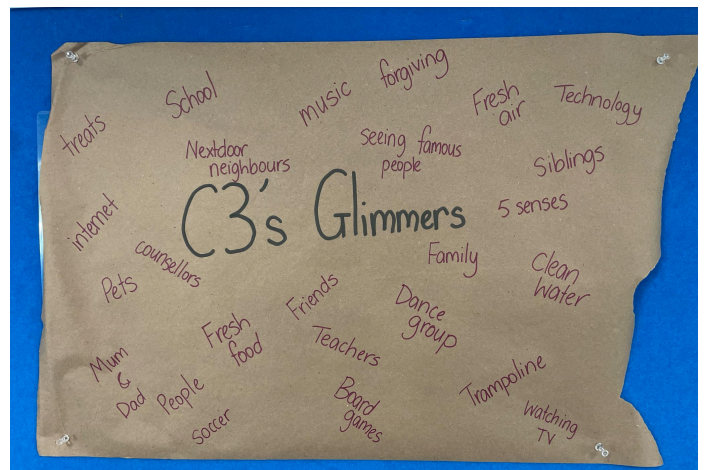 School
music
forgiving
Fresh
air
Technology
treats
Nextdoor
neighbours
seeing famous
people
Siblings
C3's Glimmers
5 senses
internet
counsellors
Family
Clean
Water
Pets
Friends
Dance
group
Fresh
food
Teachers
Mum
&
Dad
People
soccer
Board
games
Trampoline
Watching
TV